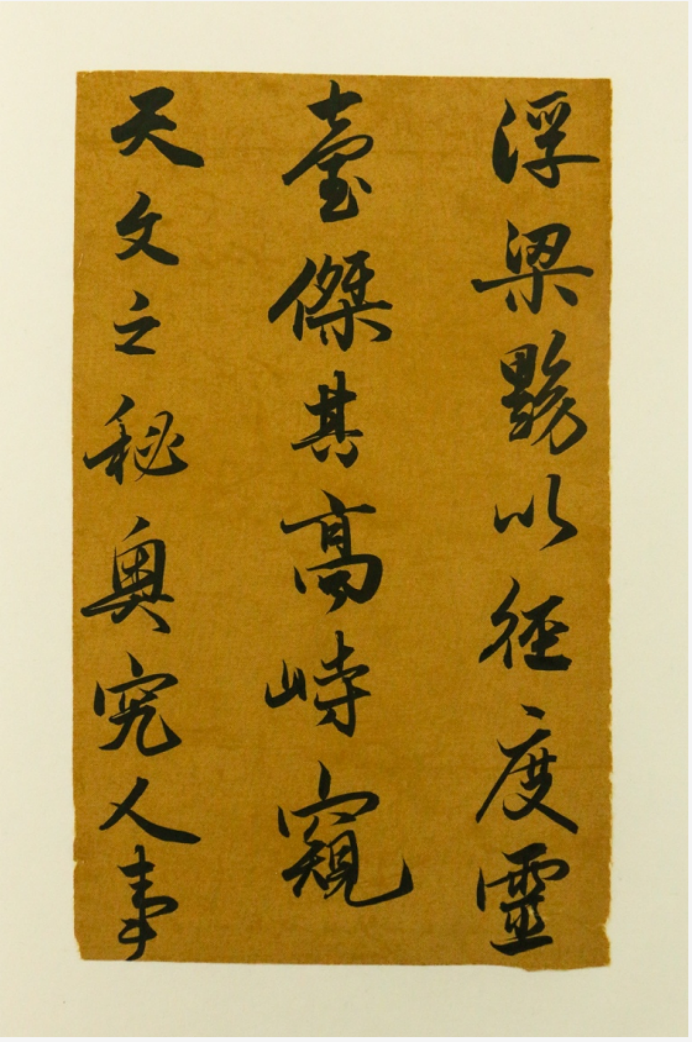 浮梁黝以徑度靈
臺傑其高峙窺
天文之秘奧究人事